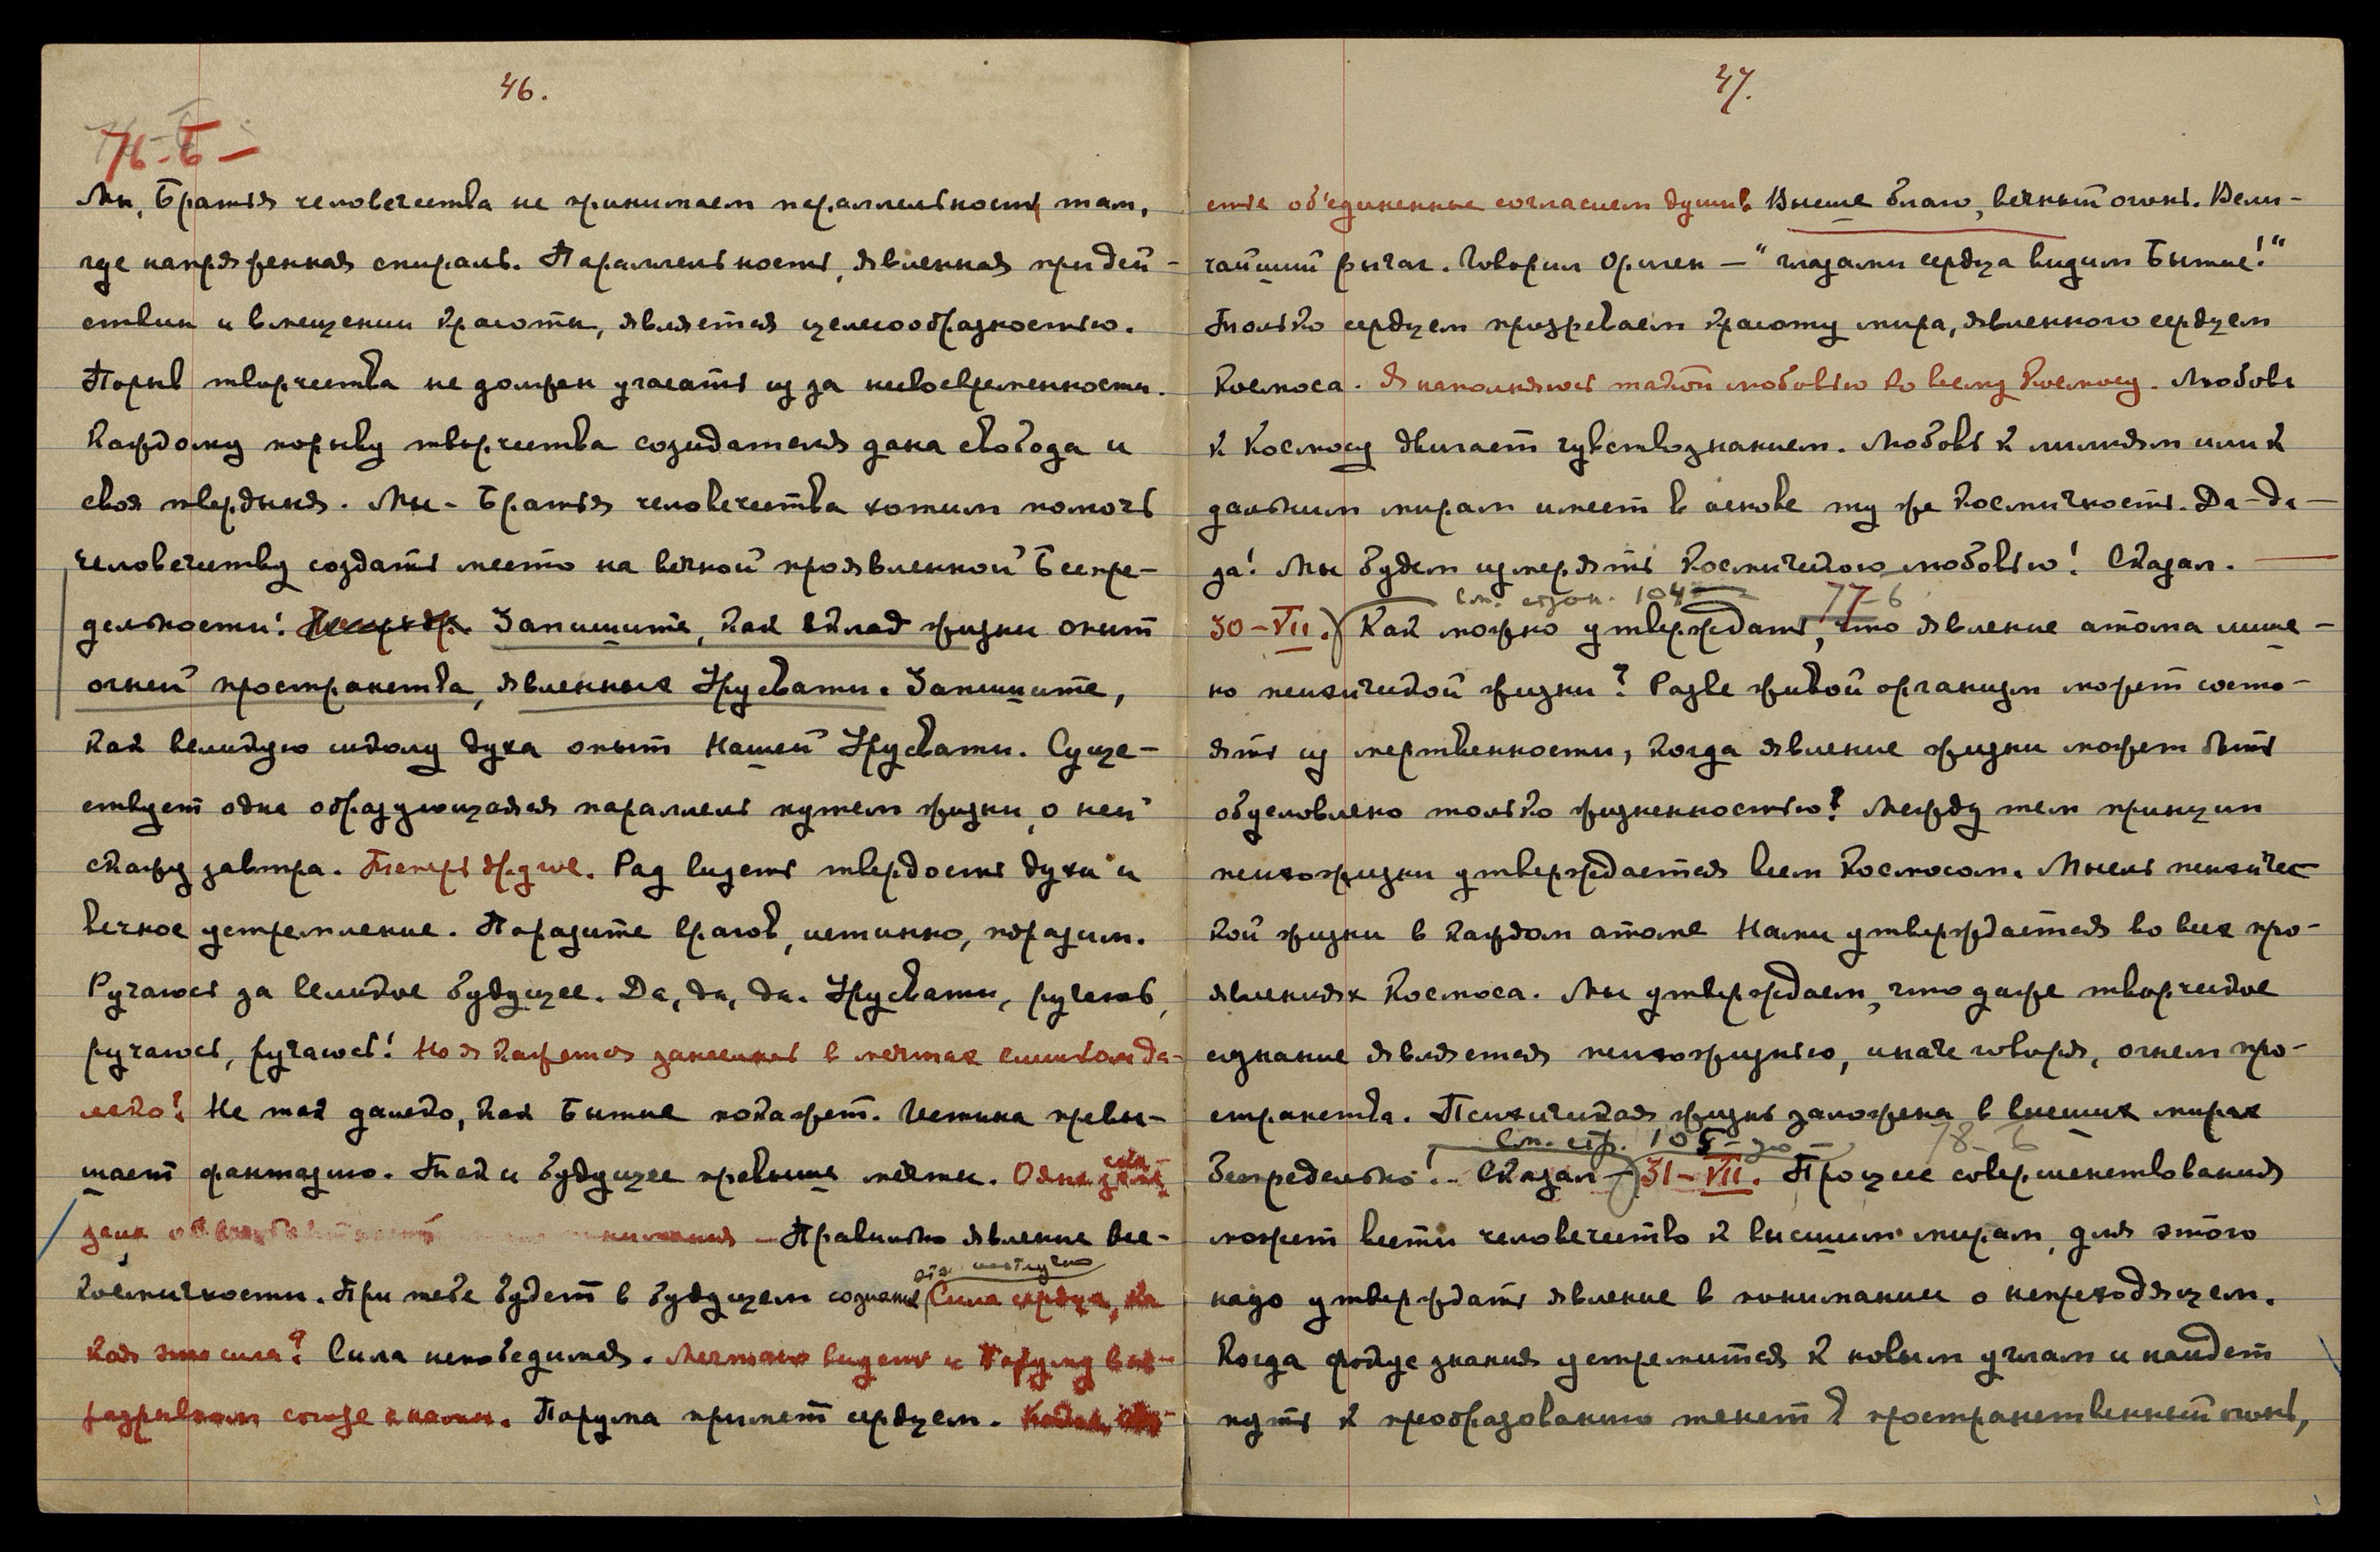 46.
76-Б-
Мы, Братья человечества не принимаем параллельности там,
где напряженная спираль. Параллельность, явленная при дей-
ствии и вмещении красоты, является целесообразностью.
Порыв творчества не должен угасать из за несвоевременности.
Каждому порыву творчества созидателя дана свобода и
своя твердыня. Мы - Братья человечества хотим помочь
человечеству создать место на вечной проявленной Беспре-
дельности! Запишите, как вклад жизни опыт
огней пространства, явленных Урусвати. Запишите,
как великую школу духа опыт Нашей Урусвати. Суще-
ствует одна образующаяся параллель путем жизни, о ней
скажу завтра. Теперь другое. Рад видеть твердость духа и
вечное устремление. Поразите врагов, истинно, поразим.
Ручаюсь за великое будущее. Да, да, да. Урусвати, ручаюсь,
ручаюсь, ручаюсь! Но я кажется занеслась в мечтах слишком да-
леко! Не так далеко, как Бытие покажет. Истина превы-
шает фантазию. Так и будущее превыше мечты.
Правильно явление все-
космичности. При тебе будет в будущем сознание Сила сердца, ка
кая это сила? Сила непобедимая. Мечтаю видеть и Порумy в не-
разрывном союзе с нами. Порума примет сердцем.
47.
стье об'единенные согласием душ Высше благо, вечный огонь. Вели-
чайший рычаг. Говорил Ориген — "глазами сердца видим Бытие!"
Только сердцем прозреваем красоту мира, явленного сердцем
Космоса. Я наполняюсь такой любовью ко всему Космосу. Любовь
к Космосу двигает чувствознанием. Любовь к лилиям или к
дальним мирам имеет в основе ту же космичность. Да-да-
да! Мы будем измерять космическою любовью! Сказал.
см. стран. 104 77-Б
30-VII. Как можно утверждать, что явление атома лише-
но психической жизни? Разве живой организм может состо-
ять из мертвенности, когда явление жизни может быть
обусловлено только жизненностью? Между тем принцип
психожизни утверждается всем Космосом. Мысль психичес-
кой жизни в каждом атоме Нами утверждается во всех про-
явлениях Космоса. Мы утверждаем, что даже творческое
сознание является психожизнью, иначе говоря, огнем про-
странства. Психическая жизнь заложена в высших мирах
См. стр. 105 78-Б
Беспредельно! - Сказал - 31-VII. Процесс совершенствования
может вести человечество к высшим мирам, для этого
надо утверждать явление в понимании о непреходящем.
Когда фокус знания устремится к новым углам и найдет
путь к преобразованию тенет в пространственный огонь,